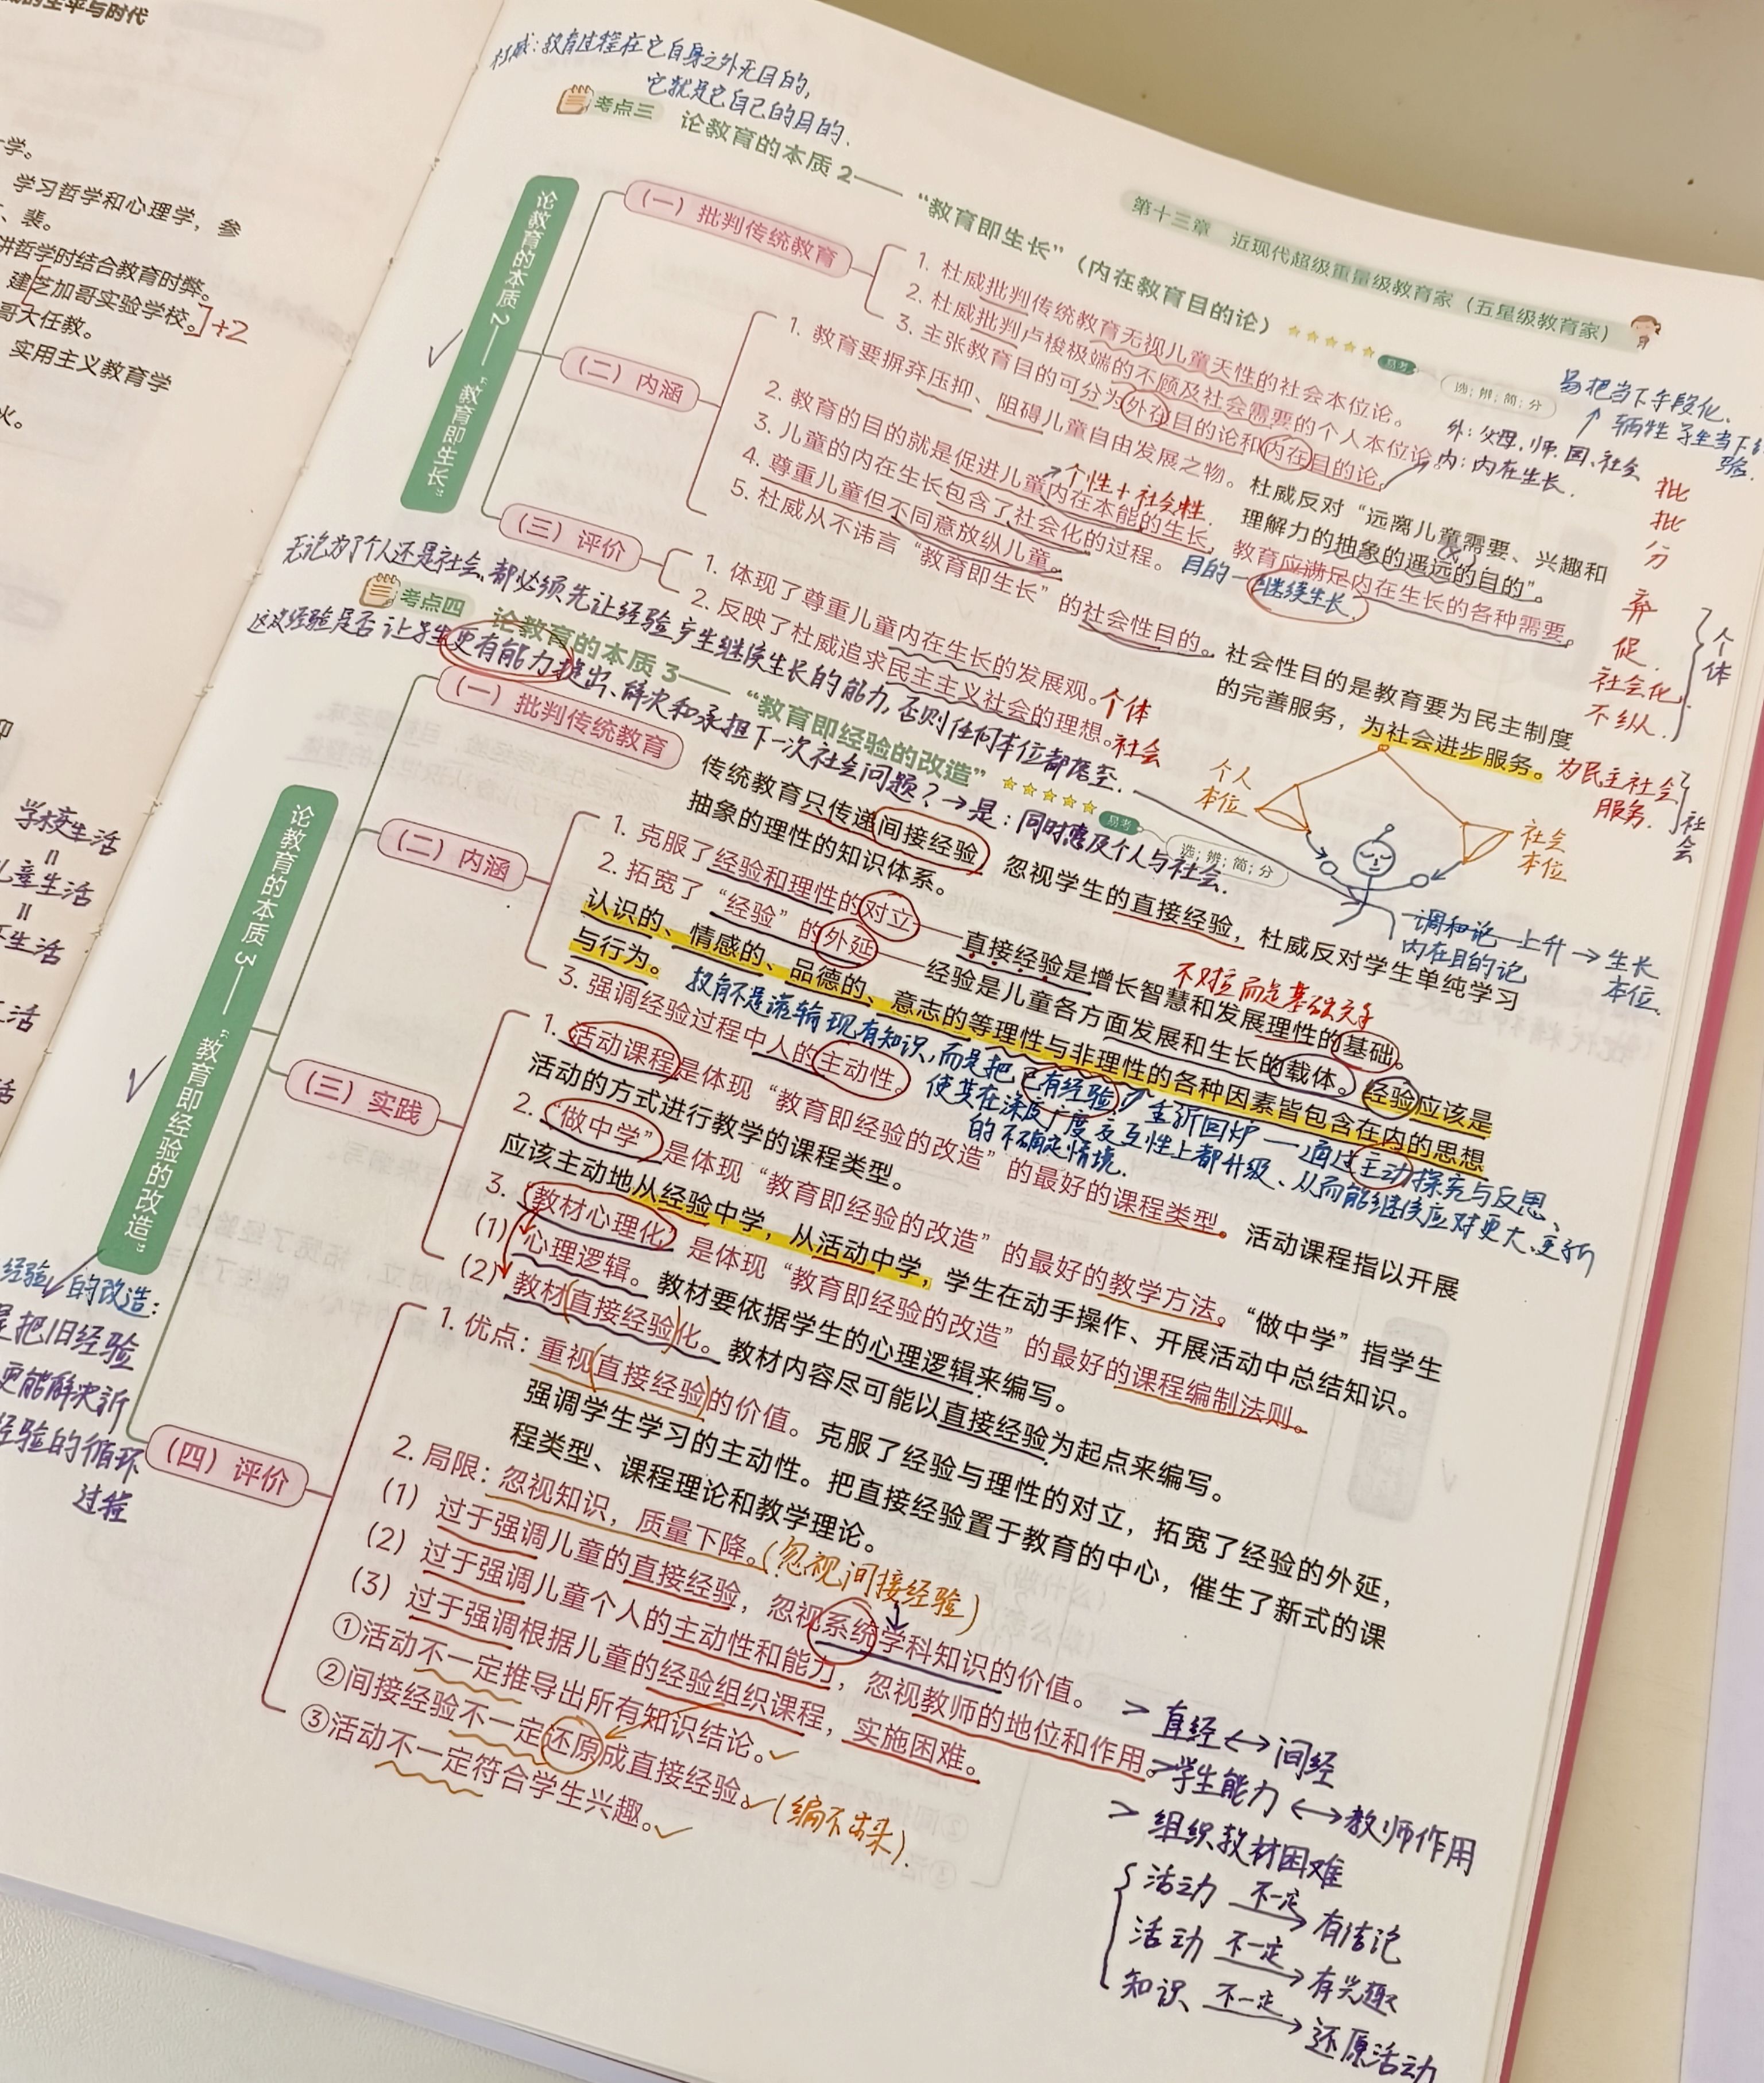 的生平与时代
学。
学习哲学和心理学，参
、裴。
讲哲学时结合教育时弊。
建芝加哥实验学校。]+2
哥大任教。
实用主义教育学
火。
学校生活
=
儿童生活
=
生活
活
杜威：教育过程在它自身之外无目的，
它就是它自己的目的.
第十三章 近现代超级重量级教育家（五星级教育家）
考点三 论教育的本质 2——“教育即生长”（内在教育目的论）
易考
选；辨；简；分
论教育的本质2——“教育即生长”
（一）批判传统教育
1. 杜威批判传统教育无视儿童天性的社会本位论。
2. 杜威批判卢梭极端的不顾及社会需要的个人本位论。
3. 主张教育目的可分为外在目的论和内在目的论。
外：父母、师、国、社会
内：内在生长.
易把当下手段化.
牺牲学生当下经验.
（二）内涵
1. 教育要摒弃压抑、阻碍儿童自由发展之物。杜威反对“远离儿童需要、兴趣和
理解力的抽象的遥远的目的”。
2. 教育的目的就是促进儿童内在本能的生长，教育应满足内在生长的各种需要。
个性+社会性.
3. 儿童的内在生长包含了社会化的过程。目的—继续生长.
4. 尊重儿童但不同意放纵儿童。
5. 杜威从不讳言“教育即生长”的社会性目的。社会性目的是教育要为民主制度
的完善服务，为社会进步服务。
批
批
分
弃
促.
社会化.
不纵.
个体
为民主社会
服务.
社会
（三）评价
1. 体现了尊重儿童内在生长的发展观。个体
2. 反映了杜威追求民主主义社会的理想。社会
无论为了个人还是社会、都必须先让经验产生继续生长的能力，否则任何本位都落空.
这次经验是否让学生更有能力提出、解决和承担下一次社会问题？→是：同时惠及个人与社会.
个人
本位
社会
本位
调和论—上升→生长
本位.
内在目的论
考点四 论教育的本质 3——“教育即经验的改造”
易考
选；辨；简；分
论教育的本质3——“教育即经验的改造”
（一）批判传统教育
传统教育只传递间接经验，忽视学生的直接经验，杜威反对学生单纯学习
抽象的理性的知识体系。
（二）内涵
1. 克服了经验和理性的对立——直接经验是增长智慧和发展理性的基础。
不对立而是基础关系
2. 拓宽了“经验”的外延——经验是儿童各方面发展和生长的载体。经验应该是
认识的、情感的、品德的、意志的等理性与非理性的各种因素皆包含在内的思想
与行为。
3. 强调经验过程中人的主动性。
教育不是灌输现有知识，而是把已有经验重新回炉——通过主动探究与反思、
使其在深度广度交互性上都升级、从而能继续应对更大、更新
的不确定情境.
（三）实践
1. 活动课程是体现“教育即经验的改造”的最好的课程类型。活动课程指以开展
活动的方式进行教学的课程类型。
2. “做中学”是体现“教育即经验的改造”的最好的教学方法。“做中学”指学生
应该主动地从经验中学，从活动中学，学生在动手操作、开展活动中总结知识。
3. “教材心理化”是体现“教育即经验的改造”的最好的课程编制法则。
（1）心理逻辑。教材要依据学生的心理逻辑来编写。
（2）教材直接经验化。教材内容尽可能以直接经验为起点来编写。
经验的改造：
是把旧经验
更能解决新
经验的循环
过程
（四）评价
1. 优点：重视直接经验的价值。克服了经验与理性的对立，拓宽了经验的外延，
强调学生学习的主动性。把直接经验置于教育的中心，催生了新式的课
程类型、课程理论和教学理论。
2. 局限：忽视知识，质量下降。（忽视间接经验）
（1）过于强调儿童的直接经验，忽视系统学科知识的价值。
（2）过于强调儿童个人的主动性和能力，忽视教师的地位和作用。
（3）过于强调根据儿童的经验组织课程，实施困难。
①活动不一定推导出所有知识结论。
②间接经验不一定还原成直接经验。（编不出来）.
③活动不一定符合学生兴趣。
> 直经↔间经
> 学生能力↔教师作用
> 组织教材困难
活动 不一定→ 有结论
活动 不一定→ 有兴趣
知识 不一定→ 还原活动